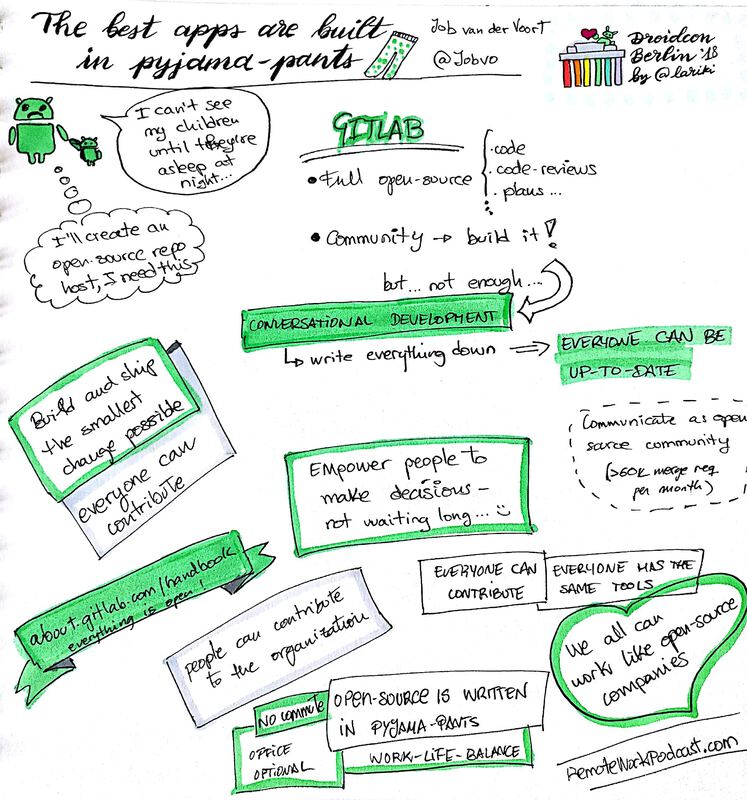 The best apps are built
in pyjama-pants
Job van der Voort
@Jobvo
Droidcon
Berlin '18
by @lariki
I can't see
my children
until they're
asleep at
night...
I'll create an
open-source repo
host, I need this
GITLAB
• Full open-source
. code
. code-reviews
. plans...
• Community → build it!
but... not enough...
CONVERSATIONAL DEVELOPMENT
↳ write everything down ⇒
EVERYONE CAN BE
UP-TO-DATE
Communicate as open
source community
(>60K merge req
per month)
Build and ship
the smallest
change possible
everyone can
contribute
Empower people to
make decisions -
not waiting long...
EVERYONE CAN
CONTRIBUTE
EVERYONE HAS THE
SAME TOOLS
about.gitlab.com/handbook
everything is open!
People can contribute
to the organization
We all can
work like open-source
companies
No commute
OPEN-SOURCE IS WRITTEN
IN PYJAMA-PANTS
OFFICE
OPTIONAL
WORK-LIFE-BALANCE
RemoteWorkPodcast.com